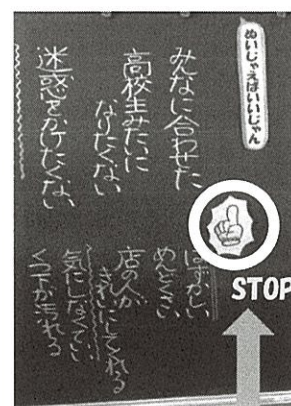 ぬいじゃえばいいじゃん
みんなに合わせた
高校生みたいに
なりたくない
迷惑をかけたくない
STOP
はずかしい
めんどさい
店の人が
きれいにしてくれる
気にしなくていい
くつ下が汚れる